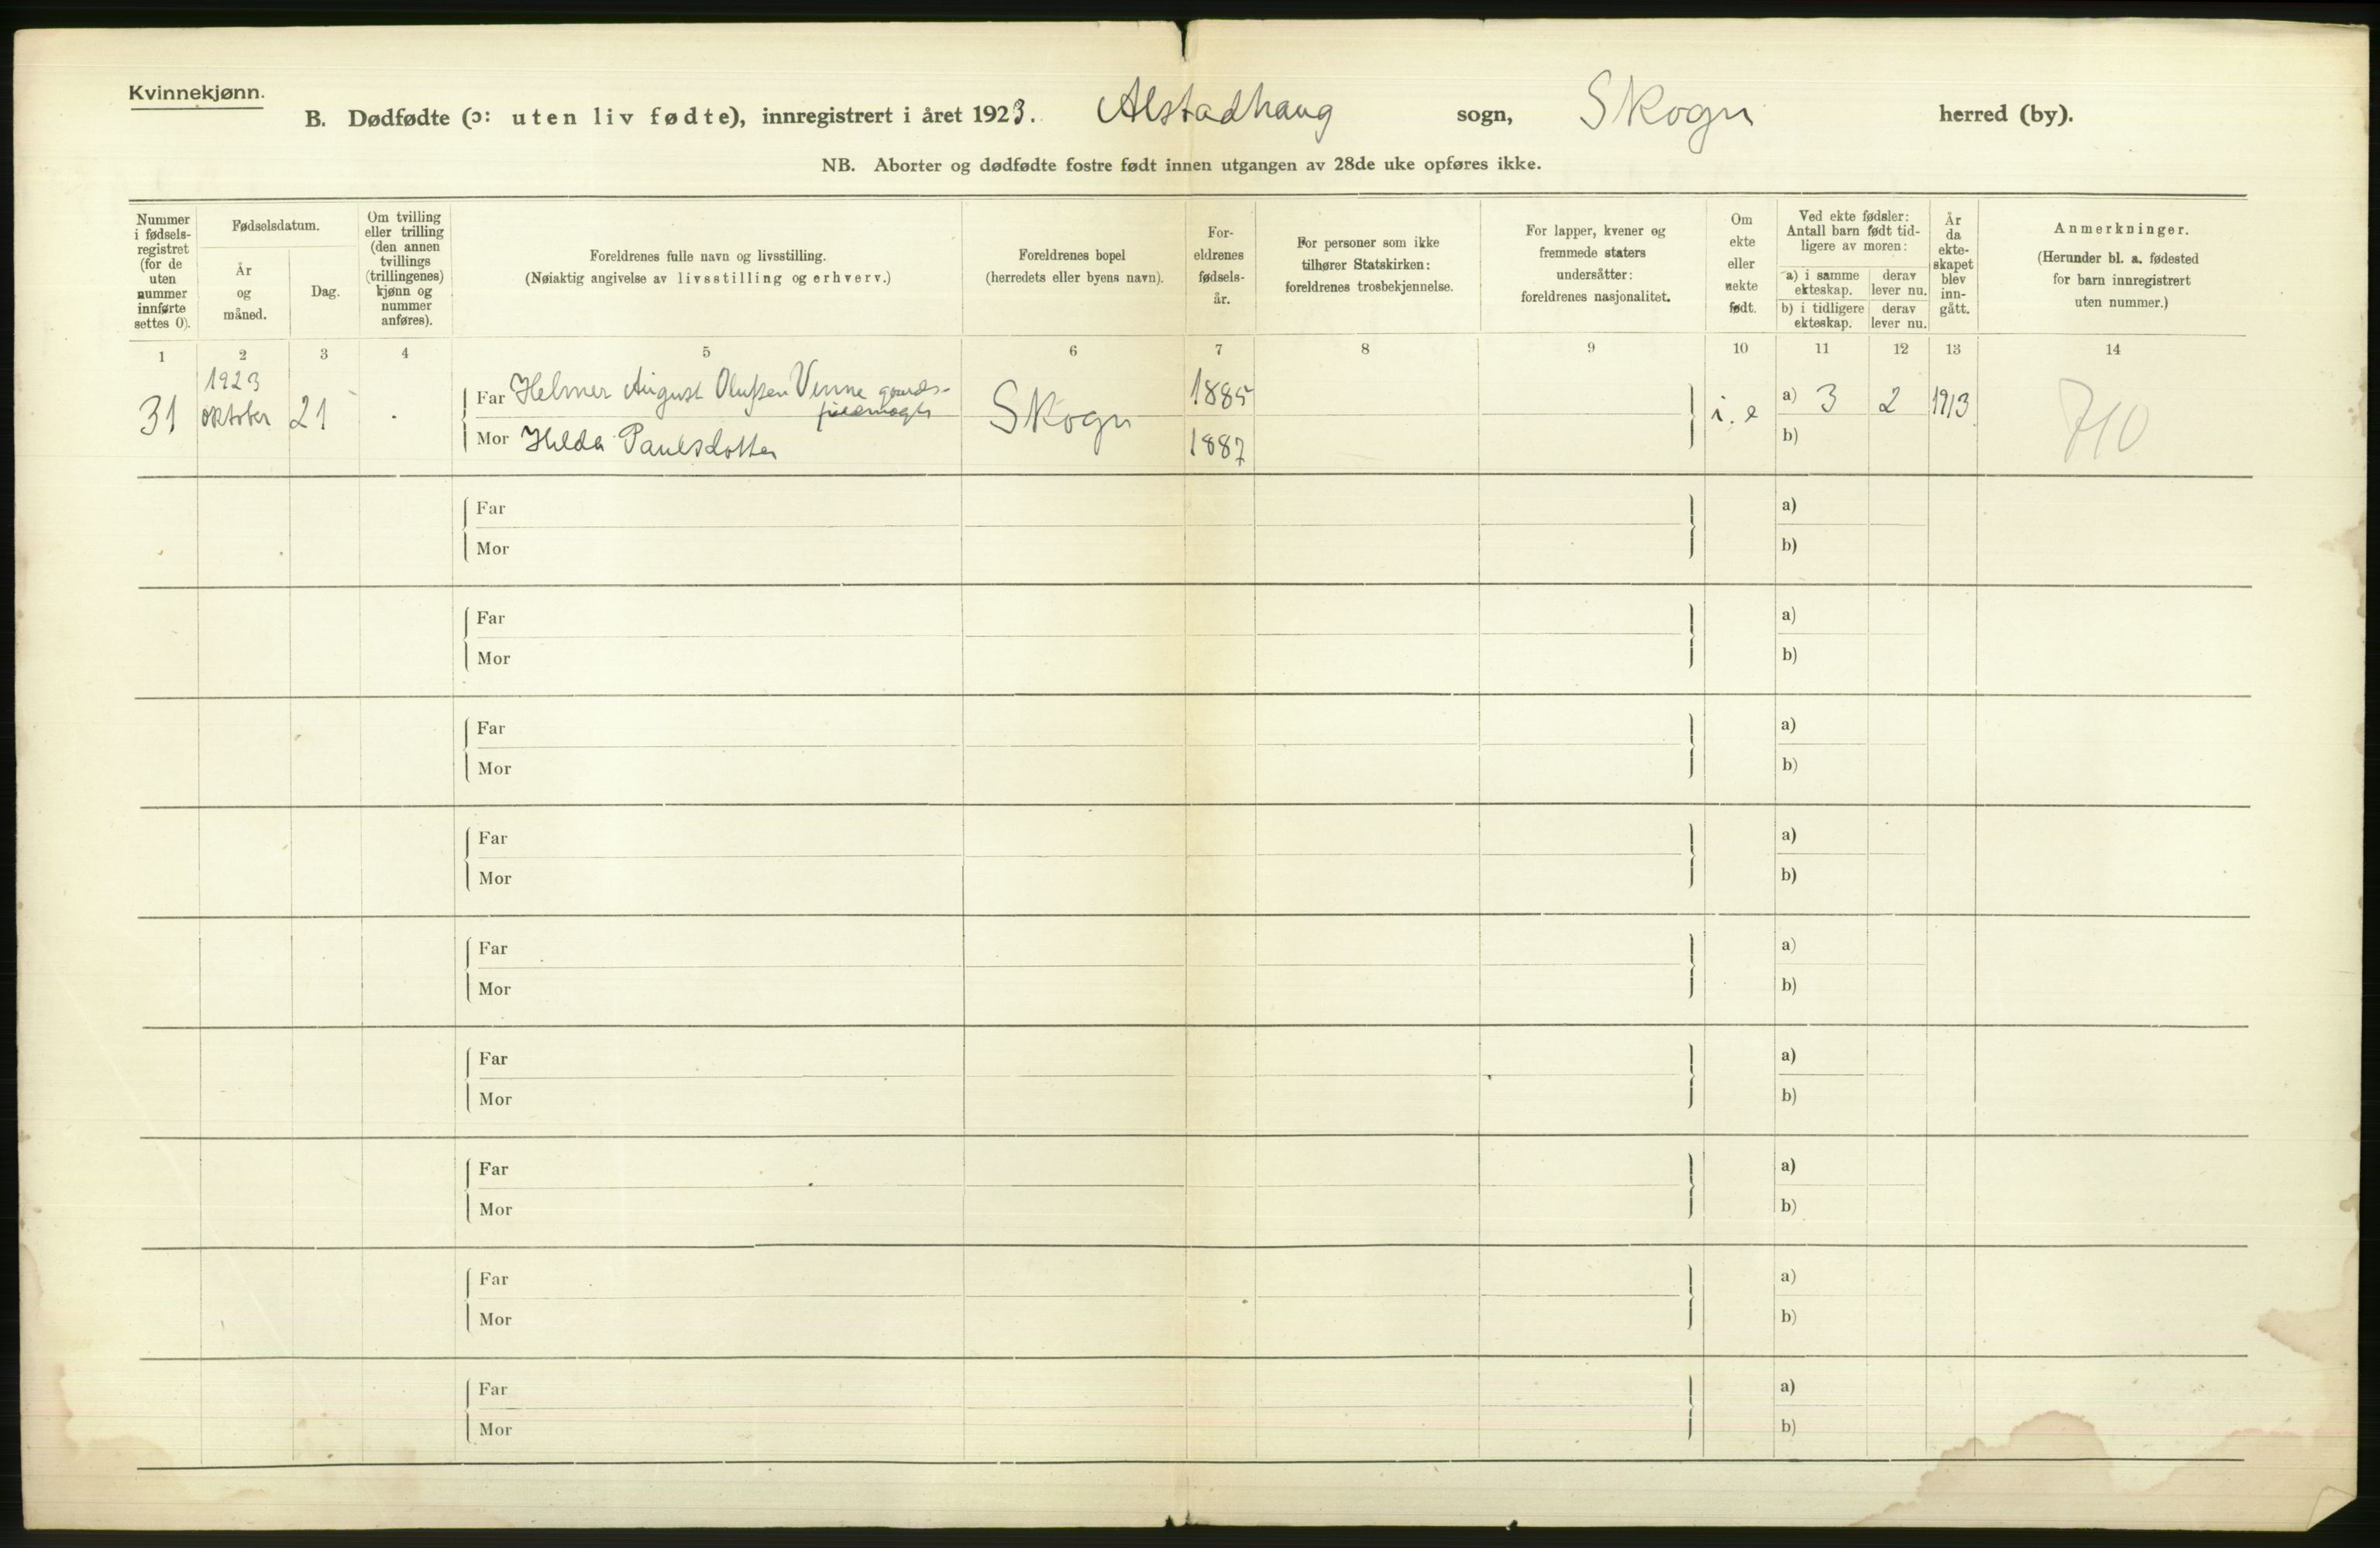 Kvinnekjønn.
B. Dødfødte (ɔ: uten liv fødte), innregistrert i året 1923. Alstadhaug sogn, Skogn herred (by).
NB. Aborter og dødfødte fostre født innen utgangen av 28de uke opføres ikke.
Nummer i fødsels-registret (for de uten nummer innførte settes 0).
Fødselsdatum.
År og måned.
Dag.
Om tvilling eller trilling (den annen tvillings (trillingenes) kjønn og nummer anføres).
Foreldrenes fulle navn og livsstilling.
(Nøiaktig angivelse av livsstilling og erhverv.)
Foreldrenes bopel
(herredets eller byens navn).
For-eldrenes fødsels-år.
For personer som ikke tilhører Statskirken: foreldrenes trosbekjennelse.
For lapper, kvener og fremmede staters undersåtter: foreldrenes nasjonalitet.
Om ekte eller uekte født.
Ved ekte fødsler: Antall barn født tid-ligere av moren:
a) i samme ekteskap.
derav lever nu.
b) i tidligere ekteskap.
derav lever nu.
År da ekte-skapet blev inn-gått.
Anmerkninger.
(Herunder bl. a. fødested for barn innregistrert uten nummer.)
1 2 3 4 5 6 7 8 9 10 11 12 13 14
1923
31 oktober 21 Far Helmer August Olufsen Venne Skogn 1885 i. e a) 3 2 1913 710
Mor Hilda Paulsdotter 1887 b)
Far a)
Mor b)
Far a)
Mor b)
Far a)
Mor b)
Far a)
Mor b)
Far a)
Mor b)
Far a)
Mor b)
Far a)
Mor b)
Far a)
Mor b)
Far a)
Mor b)